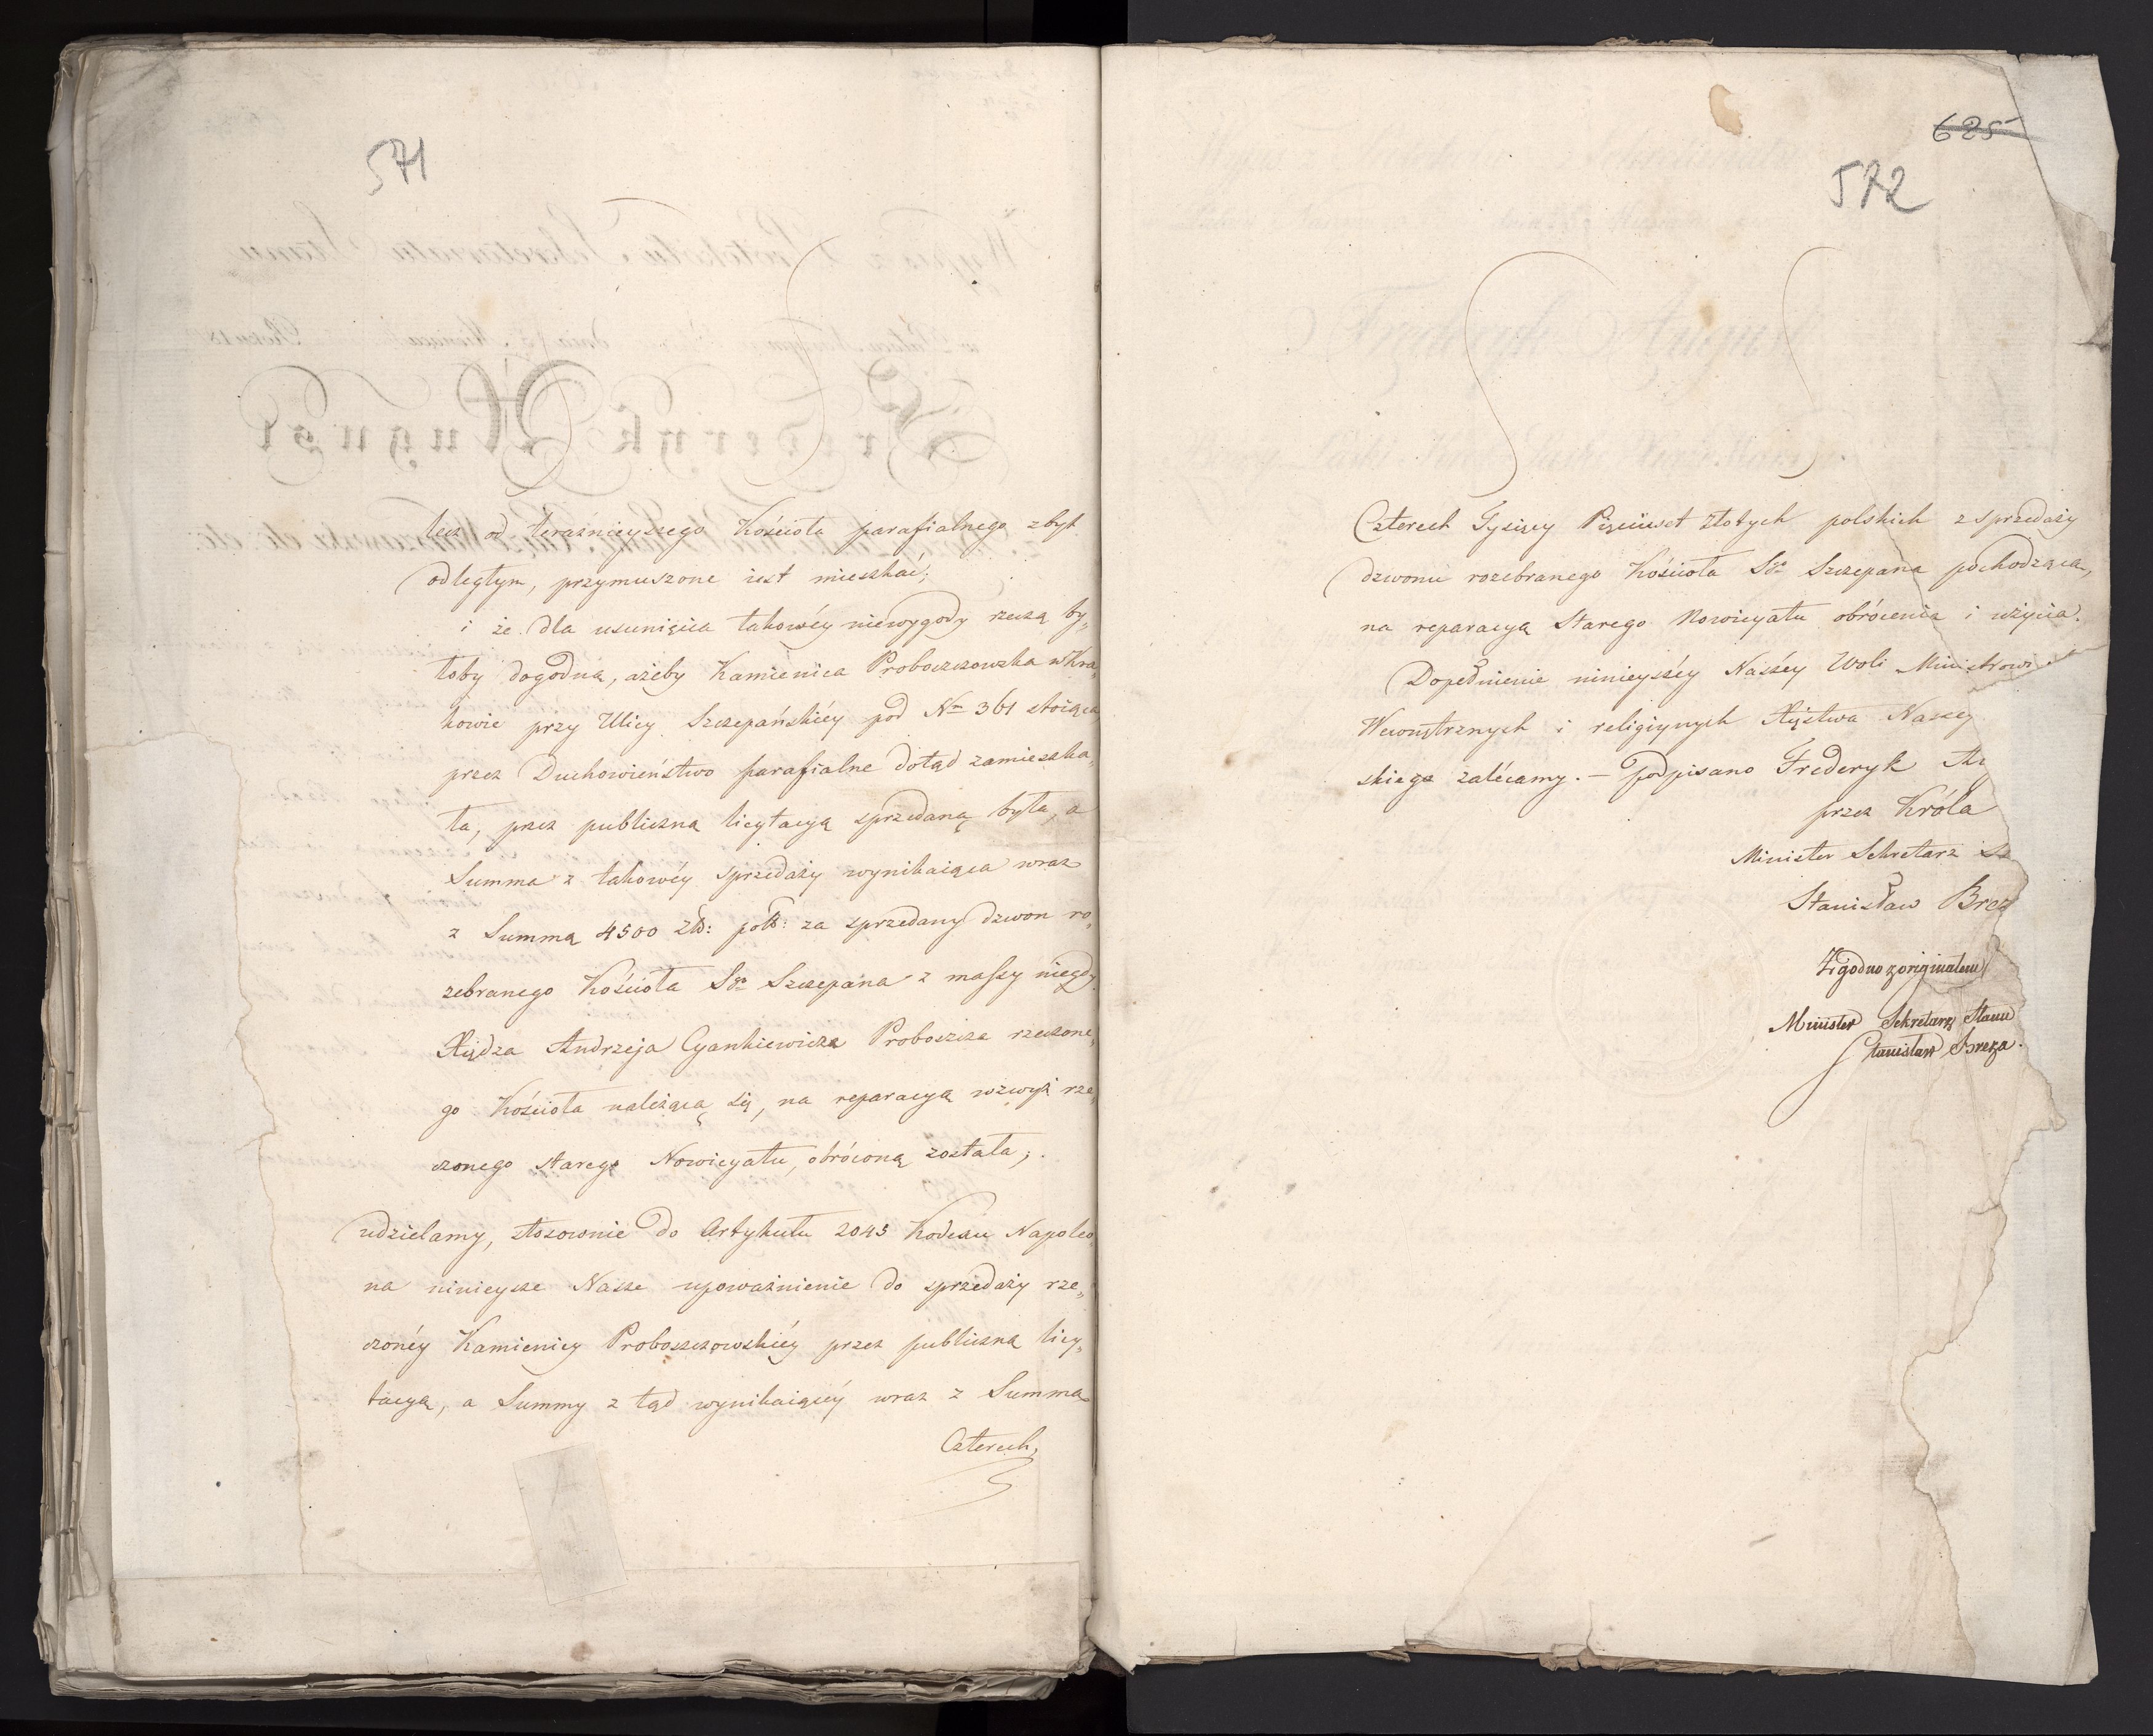 571
lecz od teraźnieyszego Kościoła parafialnego zbyt
odległym, przymuszone iest mieszkać;
i że dla usunięcia takowéy niewygody rzeczą by„
łoby dogodną, ażeby Kamienica Proboszczowska w Kra„
kowie przy Ulicy Szczepańskiéy pod Nrm 361 stoiąca
przez Duchowieństwo parafialne dotąd zamieszka„
ła, przez publiczną licytacyą sprzedaną była, a
Summa z takowéy sprzedaży wynikaiąca wraz
z Summą 4500 Zł: pol: za sprzedany dzwon ro„
zebranego Kościoła Sgo Szczepana z massy niegdy
Xiędza Andrzeja Cyankiewicza Proboszcza rzeczone„
go Kościoła należącą się, na reparacyą wzwyż rze„
czonego starego Nowicyatu, obróconą została;
udzielamy, stosownie do Artykułu 2045 Kodexu Napoleo„
na ninieysze Nasze upoważnienie do sprzedaży rze„
czonéy Kamienicy Proboszczowskiéy przez publiczną licy„
tacyą, a Summy z tąd wynikaiącéy wraz z Summą
Czterech
625
572
Czterech Tysięcy Pięciuset złotych polskich z sprzedaży
dzwonu rozebranego Kościoła Sgo Szczepana pochodzącą,
na reparacyą Starego Nowicyatu obrócenia i użycia.
Dopełnienie ninieyszéy Naszéy Woli Ministrowi
Wewnętrznych i religiynych Xięstwa Naszeg
skiego zalécamy. — Podpisano Frederyk Au
przez Króla
Minister Sekretarz St
Stanisław Brez
Zgodno z originałem
Minister Sekretarz Stanu
Stanisław Breza.